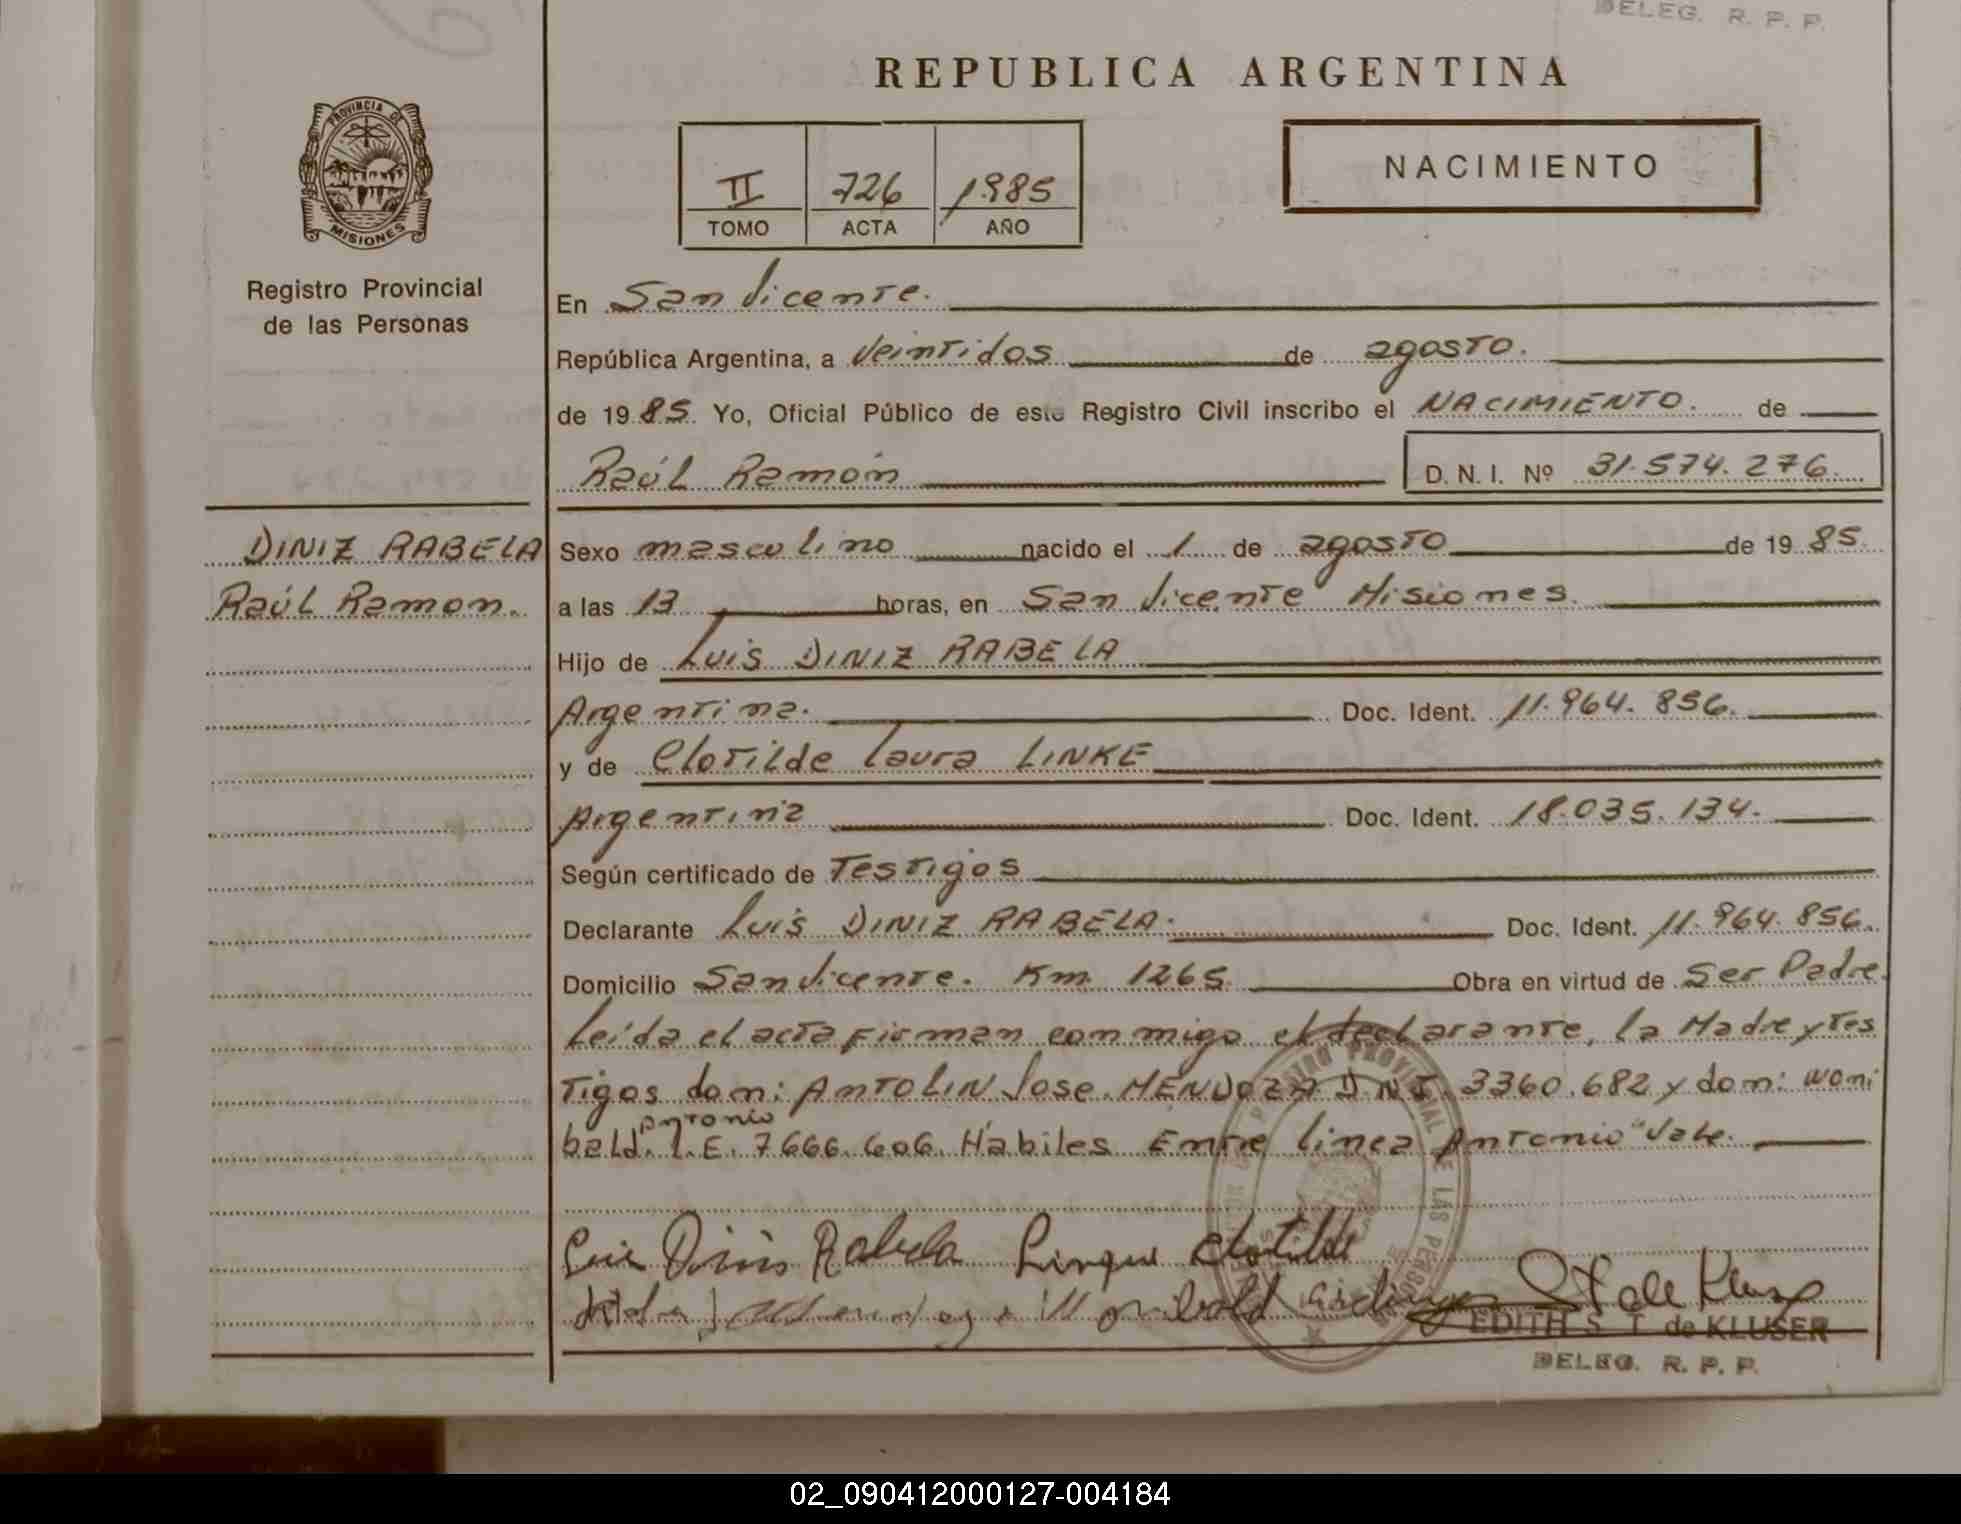 DELEG. R. P. P.
REPUBLICA ARGENTINA
PROVINCIA DE
MISIONES
Registro Provincial
de las Personas
II 726 1985
TOMO ACTA AÑO
NACIMIENTO
En San Vicente.
República Argentina, a Veintidos de agosto.
de 1985. Yo, Oficial Público de este Registro Civil inscribo el NACIMIENTO. de
Raúl Ramón D. N. I. Nº 31.574.276.
DINIZ RABELA
Raúl Ramon.
Sexo masculino nacido el 1 de agosto de 1985.
a las 13 horas, en San Vicente Misiones.
Hijo de Luis DINIZ RABELA
Argentina. Doc. Ident. 11.964.856.
y de Clotilde Laura LINKE
Argentina Doc. Ident. 18.035.134.
Según certificado de Testigos
Declarante Luis DINIZ RABELA. Doc. Ident. 11.964.856.
Domicilio San Vicente. Km 1265. Obra en virtud de Ser Padre.
Leída el acta Firman conmigo el declarante, la Madre y Tes
Tigos don: ANTOLIN Jose MENDOZA D.N.I. 3360.682 y don: Woni
Antonio
bald. L.E. 7.666.606. Hábiles Entre linea Antonio" Vale.
Luis Diniz Rabela Linque Clotilde
Wonibald
S T de Kluser
EDITH S. T. de KLUSER
DELEG. R. P. P.
02_090412000127-004184